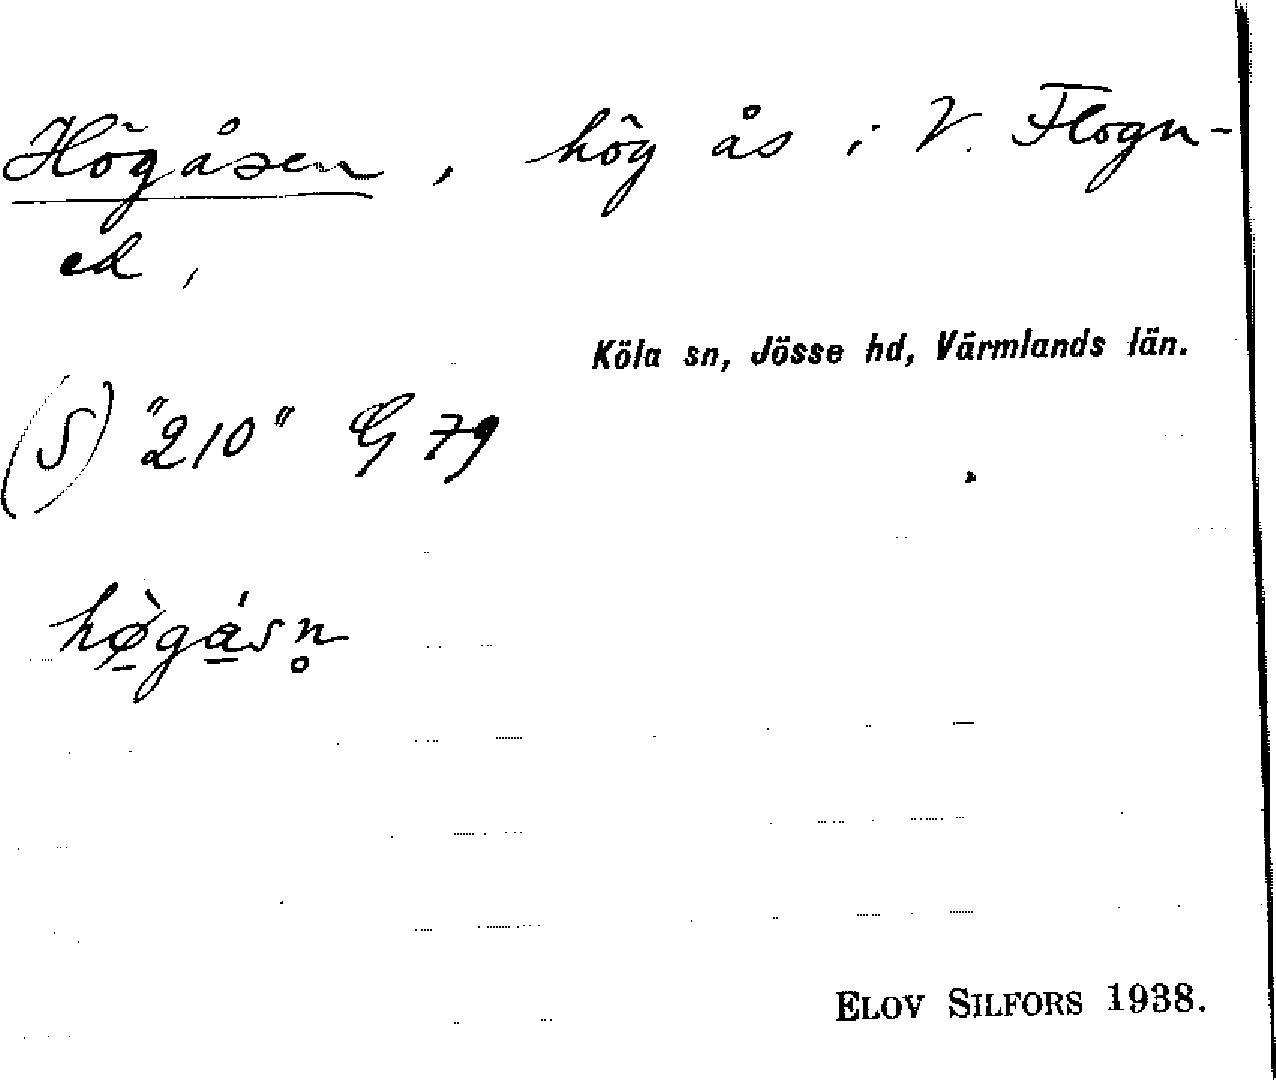 Högåsen, hög ås i V. Flogn-
ed,
Köla sn, Jösse hd, Värmlands län.
(S) "210" G 79
hø̠̀gá̠sn̥
ELOV SILFORS 1938.